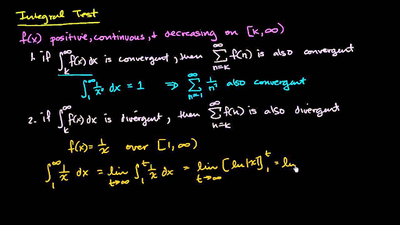 Integral Test
f(x) positive, continuous, + decreasing on [k, ∞)
1. if ∫_k^∞ f(x) dx is convergent, then ∑_{n=k}^∞ f(n) is also convergent
∫_1^∞ 1/x² dx = 1 ⇒ ∑_{n=1}^∞ 1/n² also convergent
2. if ∫_k^∞ f(x) dx is divergent, then ∑_{n=k}^∞ f(n) is also divergent
f(x) = 1/x over [1, ∞)
∫_1^∞ 1/x dx = lim_{t→∞} ∫_1^t 1/x dx = lim_{t→∞} [ln|x|]_1^t = ln